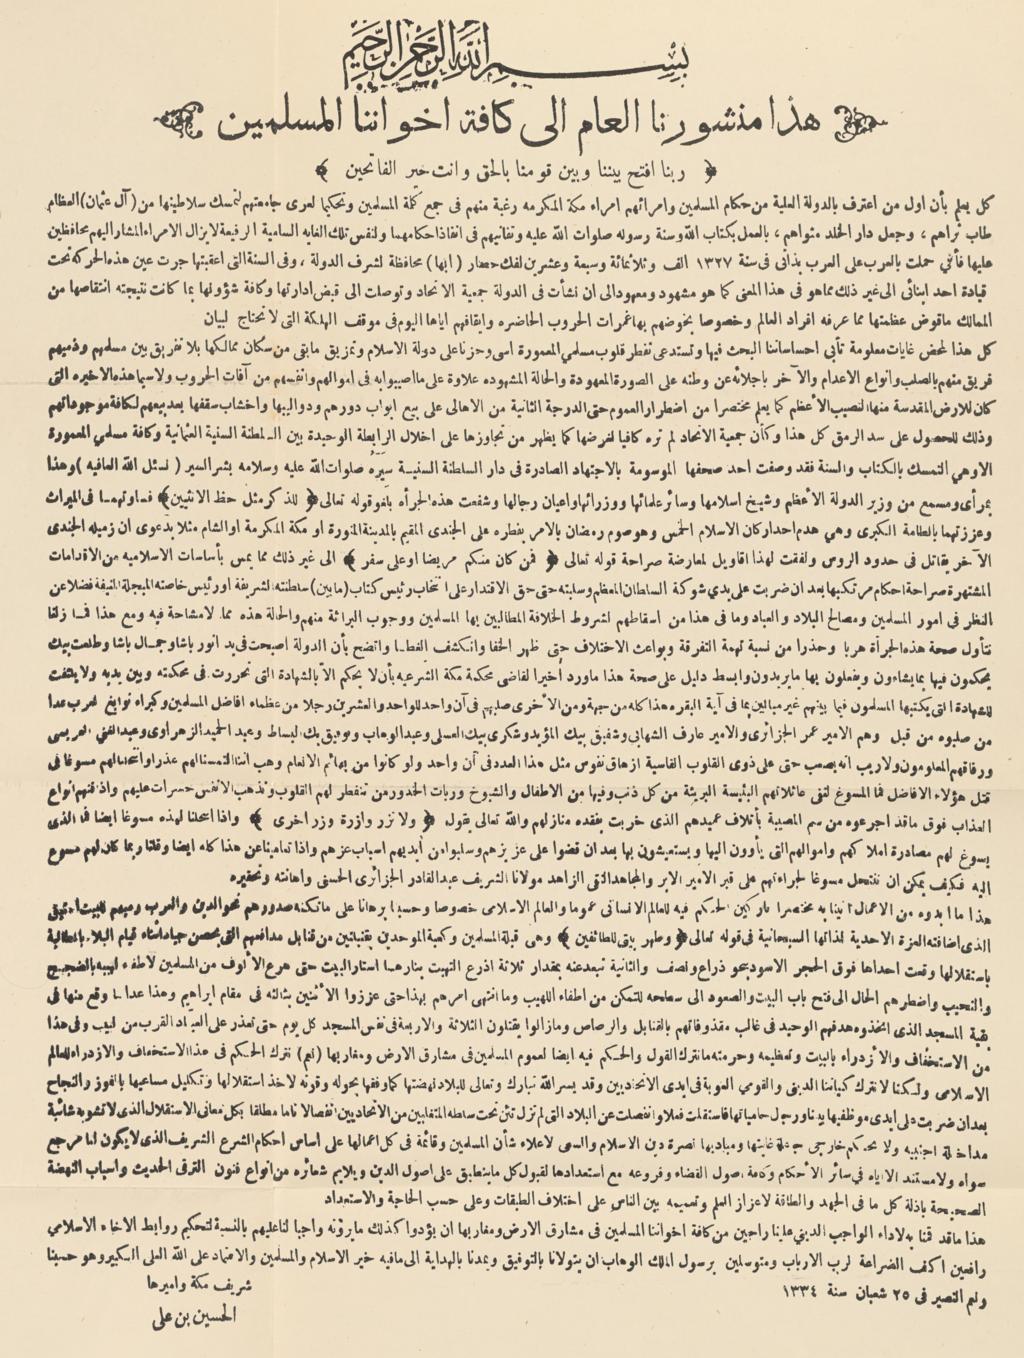 بسم الله الرحمن الرحيم
هذا منشورنا العام الى كافة اخواننا المسلمين
﴿ ربنا افتح بيننا وبين قومنا بالحق وانت خير الفاتحين ﴾
كل يعلم بأن اول من اعترف بالدولة العلية من حكام المسلمين وامرائهم امراء مكة المكرمه رغبة منهم فى جمع كلمة المسلمين وتحكيما لعرى جامعتهم لتمسك سلاطينها من (آل عثمان) العظام
طاب ثراهم ، وجعل دار الخلد مثواهم ، بالعمل بكتاب الله وسنة رسوله صلوات الله عليه وتفانيهم فى انفاذ احكامهما ولنفس تلك الغايه السامية الرفيعة لايزال الامراء المشار اليهم محافظين
عليها فأنى حملت بالعرب على العرب بذاتى فى سنة ١٣٢٧ الف وثلاثمائة وسبعة وعشرين لفك حصار (ابها) محافظة لشرف الدولة ، وفى السنة التى اعقبتها جرت عين هذه الحركه تحت
قيادة احد ابنائى الى غير ذلك مما هو فى هذا المعنى كما هو مشهود ومعهود الى ان نشأت فى الدولة جمعية الاتحاد وتوصلت الى قبض ادارتها وكافة شؤونها بما كانت نتيجته انتقاصها من
الممالك ماقوض عظمتها مما عرفه افراد العالم وخصوصا بخوضهم بها غمرات الحروب الحاضره وايقافهم اياها اليوم فى موقف الهلكة التى لا تحتاج لبيان
كل هذا لمحض غايات معلومة تأبى احساساتنا البحث فيها وتستدعى تفطر قلوب مسلمي المعمورة اسى وحزنا على دولة الاسلام وتمزيق مابقى من سكان ممالكها بلا تفريق بين مسلمهم وذميهم
فريق منهم بالصلب وانواع الاعدام والآخر باجلائه عن وطنه على الصورة المعهودة والحالة المشهوده علاوة على ما اصيبوا به فى اموالهم وانفسهم من آفات الحروب ولا سيما هذه الاخيره التى
كان للارض المقدسة منها النصيب الأعظم كما يعلم مختصرا من اضطرار العموم حتى الدرجة الثانية من الاهالى على بيع ابواب دورهم ودواليبها واخشاب سقفها بعد بيعهم لكافة موجوداتهم
وذلك للحصول على سد الرمق كل هذا وكأن جمعية الاتحاد لم تره كافيا لغرضها كما يظهر من تجاوزها على اخلال الرابطة الوحيدة بين السلطنة السنية العثمانية وكافة مسلمي المعمورة
الا وهي التمسك بالكتاب والسنة فقد وصفت احد صحفها الموسومة بالاجتهاد الصادرة فى دار السلطنة السنية سيره صلوات الله عليه وسلامه بشر السير (نسئل الله العافيه) وهذا
بمرأى ومسمع من وزير الدولة الأعظم وشيخ اسلامها وسائر علمائها ووزرائها واعيان رجالها وشفعت هذه الجرأه بلغو قوله تعالى ﴿ للذكر مثل حظ الانثيين ﴾ فساوتهما فى الميراث
وعززتهما بالطامة الكبرى وهي هدم احد اركان الاسلام الخمس وهو صوم رمضان بالامر بفطره على الجندى المقيم بالمدينة المنورة او مكة المكرمة او الشام مثلا بدعوى ان زميله الجندى
الآخر يقاتل فى حدود الروس ولفقت لهذا اقاويل لمعارضة صراحة قوله تعالى ﴿ فمن كان منكم مريضا او على سفر ﴾ الى غير ذلك مما يمس بأساسات الاسلاميه من الاقدامات
المشتهرة صراحة احكام مرتكبها بعد ان ضربت على يدي شوكة السلطان المعظم وسلبته حتى حق الاقتدار على انتخاب رئيس كتاب (مابين) سلطنته الشريفة او رئيس خاصته المبجلة المنيفة فضلا عن
النظر فى امور المسلمين ومصالح البلاد والعباد وما فى هذا من اسقاطهم لشروط الخلافة المطالبين بها المسلمين ووجوب البرائة منهم والحالة هذه مما لا مشاحة فيه ومع هذا فما زلنا
نتأول صحة هذه الجرأة هربا وحذرا من نسبة تهمة التفرقة وبواعث الاختلاف حتى ظهر الخفا وانكشف الغطا واتضح بأن الدولة اصبحت فى يد انور باشا وجمال باشا وطلعت بيك
يحكمون فيها بما يشاءون ويفعلون بها مايريدون وابسط دليل على صحة هذا ماورد أخيرا لقاضى محكمة مكة الشرعيه بأن لا يحكم الا بالشهادة التى تحررت فى محكمته وبين يديه ولا يلتفت
للشهادة التى يكتبها المسلمون فيما بينهم غير مبالين بما فى آية البقره هذا كله من جهة ومن الأخرى صلبهم فى آن واحد للواحد والعشرين رجلا من عظماء افاضل المسلمين وكبراء نوابغ العرب عدا
من صلبوه من قبل وهم الامير عمر الجزائرى والامير عارف الشهابى وشفيق بيك المؤيد وشكرى بيك العسلى وعبد الوهاب وتوفيق بك البساط وعبد الحميد الزهراوى وعبد الغنى العريسى
ورفاقهم المعلومون ولاريب انه يصعب حتى على ذوى القلوب القاسية ازهاق نفوس مثل هذا العدد فى آن واحد ولو كانوا من بهائم الانعام وهب اننا التمسنا لهم عذرا وانتحلنا لهم مسوغا فى
قتل هؤلاء الافاضل فما المسوغ لنفى عائلاتهم البئيسة البريئة من كل ذنب وفيها من الاطفال والشيوخ وربات الخدور من تنفطر لهم القلوب وتذهب الانفس حسرات عليهم واذاقتهم انواع
العذاب فوق ماقد اجرعوه من سم المصيبة بأتلاف عميدهم الذى خربت بفقده منازلهم والله تعالى يقول ﴿ ولا تزر وازرة وزر اخرى ﴾ واذا انتحلنا لهذه مسوغا ايضا فما الذى
يسوغ لهم مصادرة املاكهم واموالهم التى يأوون اليها ويستعيشون بها بعد ان قضوا على عزيزهم وسلبوا من أيديهم اسباب عزهم واذا تعاميناعن هذا كله ايضا وقلنا ربما كان لهم مسوغ
اليه فكيف يمكن ان ننتحل مسوغا لجراءتهم على قبر الامير الابر والمجاهد التقى الزاهد مولانا الشريف عبد القادر الجزائرى الحسنى واهانته وتحقيره
هذا ما ابدوه من الاعمال اتينا به مختصرا تاركين الحكم فيه للعالم الانسانى عموما والعالم الاسلامى خصوصا وحسبنا برهانا على ماتكنه صدورهم نحو الدين والعرب رميهم للبيت العتيق
الذى اضافته العزة الاحدية لذاتها السبحانية فى قوله تعالى ﴿ وطهر بيتى للطائفين ﴾ وهى قبلة المسلمين وكعبة الموحدين بقنبلتين من قنابل مدافعهم التى بحصن جياد اثناء قيام البلاد بالمطالبة
باستقلالها وقعت احداها فوق الحجر الاسود بنحو ذراع ونصف والثانية تبعد عنه بمقدار ثلاثة اذرع التهبت بنارهما استار البيت حتى هرع الألوف من المسلمين لاطفاء لهيبه بالضجيج
والنحيب واضطرهم الحال الى فتح باب البيت والصعود الى سطحه للتمكن من اطفاء اللهيب وما انتهى امرهم بهذا حتى عززوا الأثنين بثالثه فى مقام ابراهيم وهذا عدا ما وقع منها فى
بقية المسجد الذى اتخذوه هدفهم الوحيد فى غالب مقذوفاتهم بالقنابل والرصاص ومازالوا يقتلون الثلاثة والاربعة فى نفس المسجد كل يوم حتى تعذر على العباد القرب من البيت وفى هذا
من الاستخفاف والأزدراء بالبيت وتعظيمه وحرمته مانترك القول والحكم فيه ايضا لعموم المسلمين فى مشارق الارض ومغاربها (نعم) نترك الحكم فى هذا الاستخفاف والازدراء للعالم
الاسلامى ولكننا لا نترك كياننا الدينى والقومى العوبة فى ايدى الاتحاديين وقد يسر الله تبارك وتعالى للبلاد نهضتها كما وفقها بحوله وقوته لاخذ استقلالها وتكليل مساعيها بالفوز والنجاح
بعد ان ضربت على ايدى موظفيها يدنا ورجول حامياتها فاستقلت فعلا وانفصلت عن البلاد التى لم تزل تئن تحت سلطه المتغلبين من الاتحاديين انفصالا تاما مطلقا بكل معانى الاستقلال الذى لا تشوبه شائبة
مداخلة اجنبيه ولا تحكم خارجى جاعلة غايتها ومبادئها نصرة دين الاسلام والسعى لاعلاء شأن المسلمين وقائمة فى كل اعمالها على اساس احكام الشرع الشريف الذى لا يكون لنا مرجع
سواه ولا مستند الا اياه فى سائر الأحكام وكافة اصول القضاء وفروعه مع استعدادها لقبول كل ما ينطبق على اصول الدين ويلايم شعائره من انواع فنون الترقى الحديث واسباب النهضة
الصحيحة باذلة كل ما فى الجهد والطاقة لاعزاز العلم وتعميمه بين الناس على اختلاف الطبقات وعلى حسب الحاجة والاستعداد
هذا ماقد قمنا به لاداء الواجب الدينى علينا راجين من كافة اخواننا المسلمين فى مشارق الارض ومغاربها ان يؤدوا كذلك مايرونه واجبا لنا عليهم بالنسبة لتحكيم روابط الاخاء الاسلامي
رافعين اكف الضراعة لرب الارباب ومتوسلين برسول الملك الوهاب ان يتولانا بالتوفيق ويمدنا بالهداية الى مافيه خير الاسلام والمسلمين والاعتماد على الله العلى الكبير وهو حسبنا
ونعم النصير فى ٢٥ شعبان سنة ١٣٣٤
شريف مكة واميرها
الحسين بن على